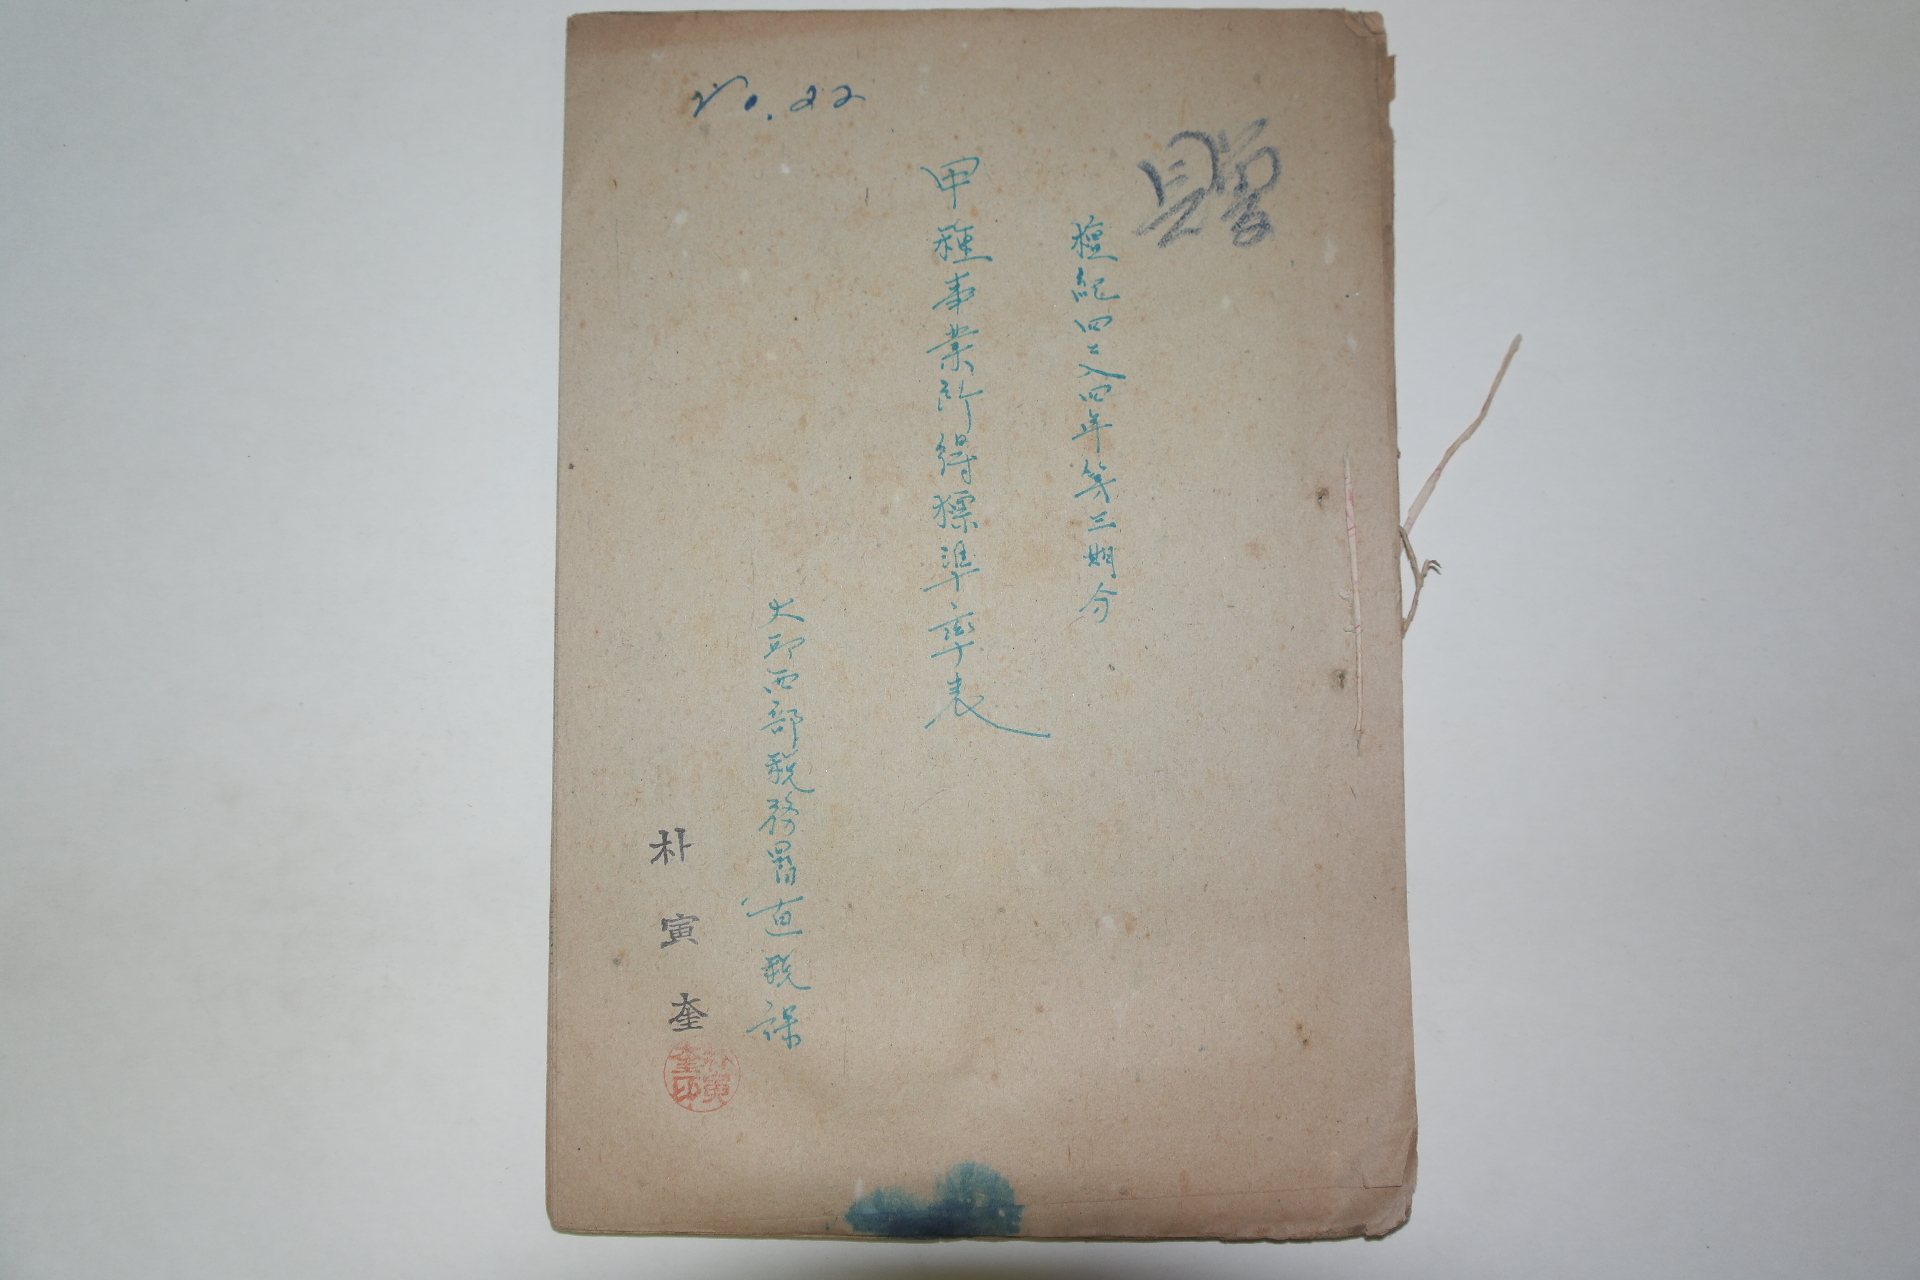 No. 22
檀紀四二八四年第三期分
甲種事業所得標準率表
大邱西部稅務署直稅課
朴寅奎
朴寅奎印